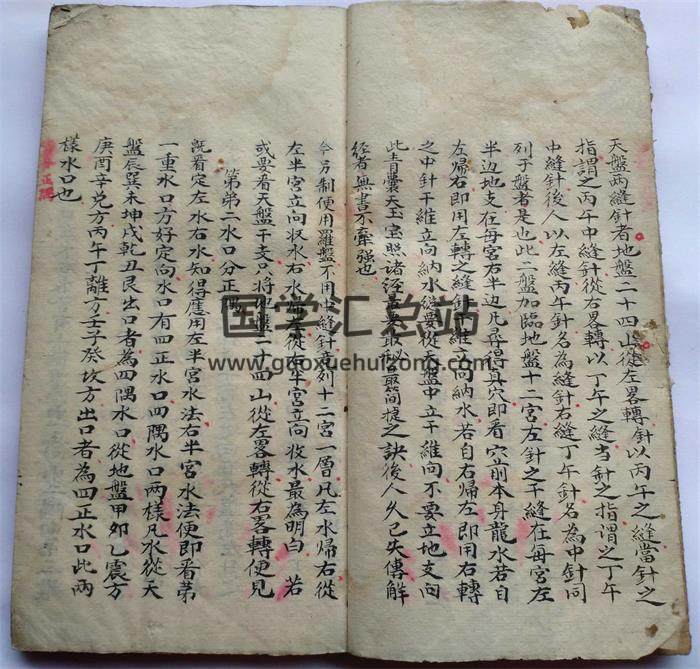 天盤兩縫針者地盤二十四山從左畧轉針以丙午之縫當針之
指謂之丙午中縫針從右畧轉以丁午之縫当針之指謂之丁午
中縫針後人以左縫丙午針名為縫針右縫丁午針名為中針同
列于盤者是也此二盤加臨地盤十二宮左針之干縫在每宮左
半边地支在每宮右半边凡尋得真穴即看穴前本身龍水若自
左歸右即用左轉之縫針干維立向納水若自右帰左即用右轉
之中針干維立向納水總要從天盤中立干維向不要立地支向
此青囊天玉宝照諸經最要最秘最简捷之訣後人久已失傳解
經者無書不牽强也
今另制便用羅盤不用中縫針竟列十二宮一層凡左水帰右從
左半宮立向收水右水帰左從右半宮立向收水最為明白若
或要看天盤干支只将地盤二十四山從左畧轉從右畧轉便見
第弟二水口分正隅
既看定左水右水知得應用左半宮水法右半宮水法便即看苐
一重水口方好定向水口有四正水口四隅水口兩樣凡水從天
盤辰巽未坤戌乾丑艮出口者為四隅水口從地盤甲卯乙震方
庚酉辛兑方丙午丁離方壬子癸坎方出口者為四正水口此兩
樣水口也
国学汇总站
www.guoxuehuizong.com